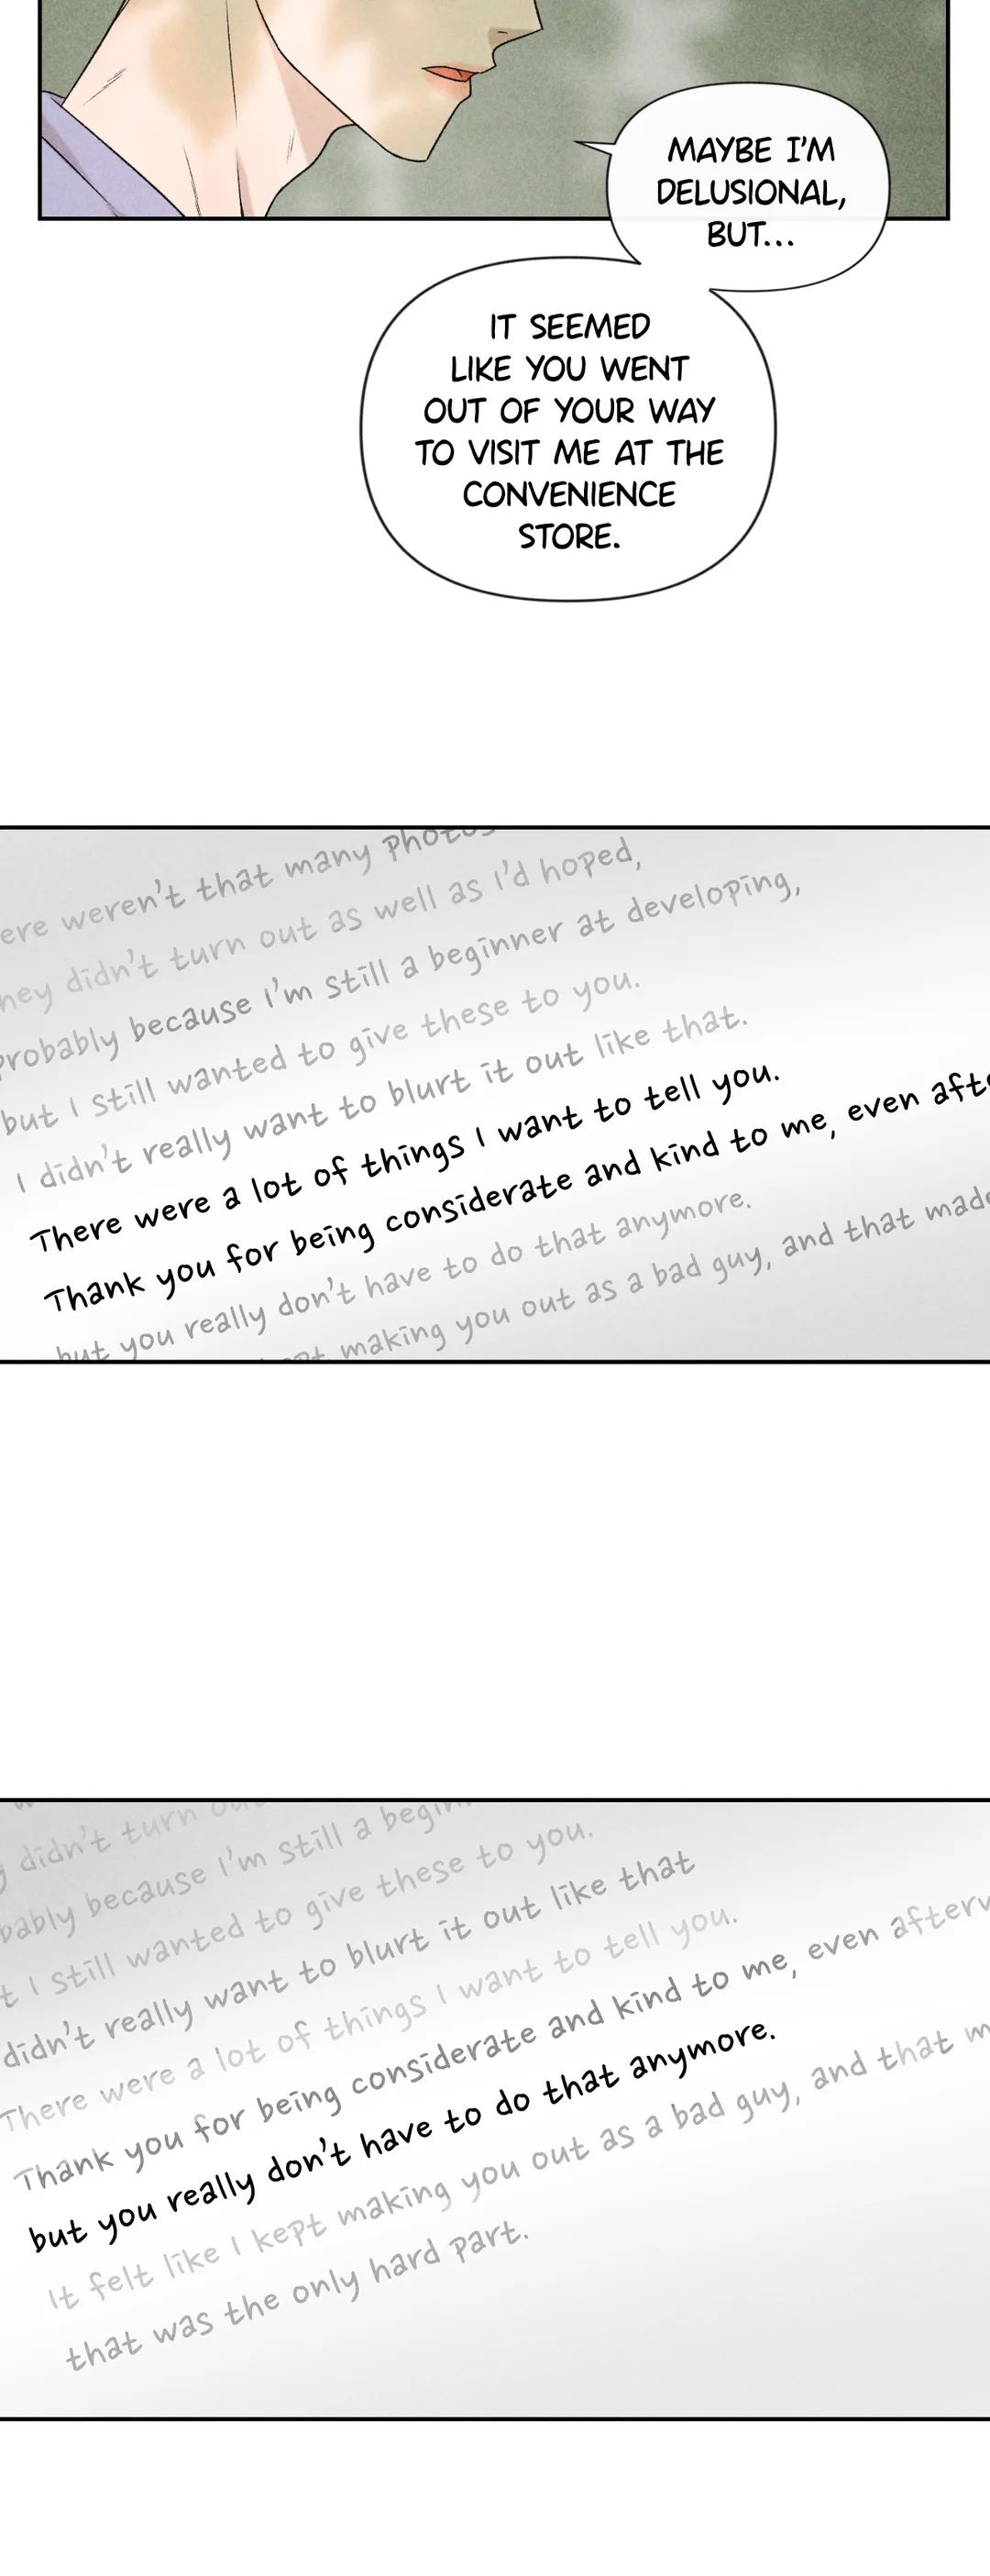 MAYBE I'M
DELUSIONAL,
BUT...
IT SEEMED
LIKE YOU WENT
OUT OF YOUR WAY
TO VISIT ME AT THE
CONVENIENCE
STORE.
ere weren't that many photos
hey didn't turn out as well as I'd hoped,
probably because I'm still a beginner at developing,
but I still wanted to give these to you.
I didn't really want to blurt it out like that.
There were a lot of things I want to tell you.
Thank you for being considerate and kind to me, even afte
but you really don't have to do that anymore.
kept making you out as a bad guy, and that made
didn't turn ou
bably because I'm still a begin
t I still wanted to give these to you.
didn't really want to blurt it out like that
There were a lot of things I want to tell you.
Thank you for being considerate and kind to me, even afterw
but you really don't have to do that anymore.
It felt like I kept making you out as a bad guy, and that m
that was the only hard part.